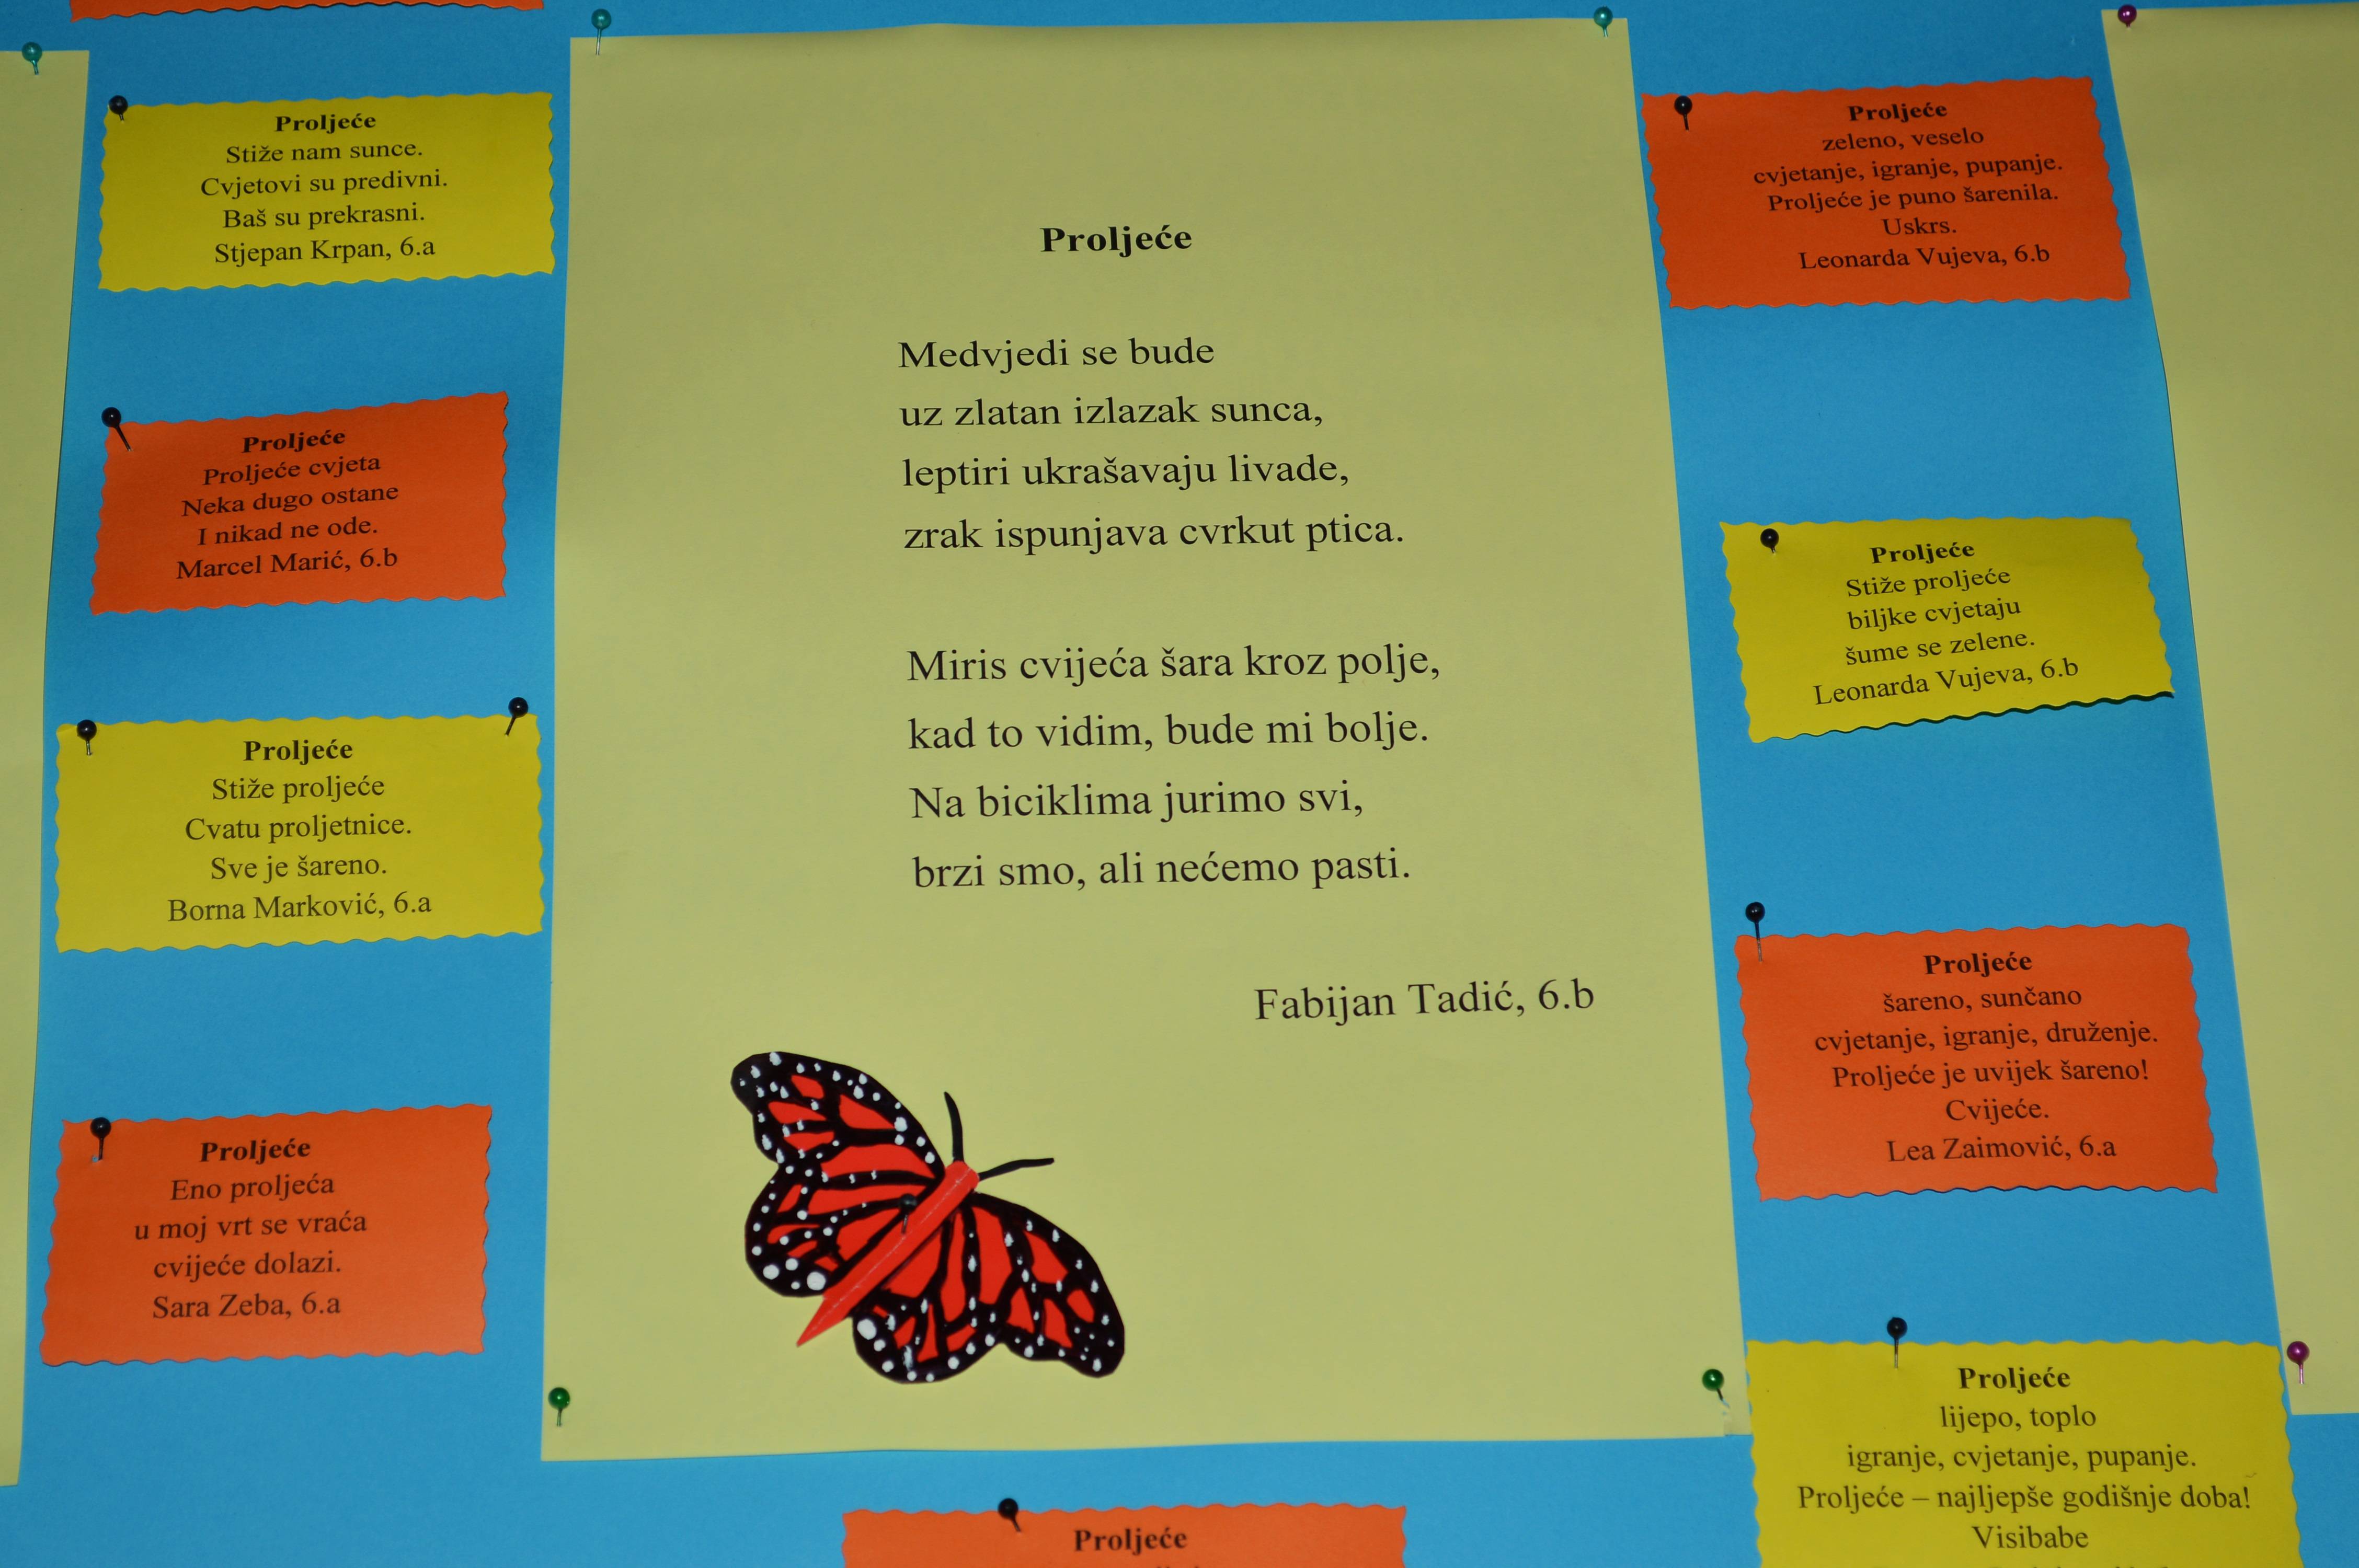 Proljeće
Stiže nam sunce.
Cvjetovi su predivni.
Baš su prekrasni.
Stjepan Krpan, 6.a
Proljeće
Proljeće cvjeta
Neka dugo ostane
I nikad ne ode.
Marcel Marić, 6.b
Proljeće
Stiže proljeće
Cvatu proljetnice.
Sve je šareno.
Borna Marković, 6.a
Proljeće
Eno proljeća
u moj vrt se vraća
cvijeće dolazi.
Sara Zeba, 6.a
Proljeće
Medvjedi se bude
uz zlatan izlazak sunca,
leptiri ukrašavaju livade,
zrak ispunjava cvrkut ptica.
Miris cvijeća šara kroz polje,
kad to vidim, bude mi bolje.
Na biciklima jurimo svi,
brzi smo, ali nećemo pasti.
Fabijan Tadić, 6.b
Proljeće
Proljeće
zeleno, veselo
cvjetanje, igranje, pupanje.
Proljeće je puno šarenila.
Uskrs.
Leonarda Vujeva, 6.b
Proljeće
Stiže proljeće
biljke cvjetaju
šume se zelene.
Leonarda Vujeva, 6.b
Proljeće
šareno, sunčano
cvjetanje, igranje, druženje.
Proljeće je uvijek šareno!
Cvijeće.
Lea Zaimović, 6.a
Proljeće
lijepo, toplo
igranje, cvjetanje, pupanje.
Proljeće – najljepše godišnje doba!
Visibabe